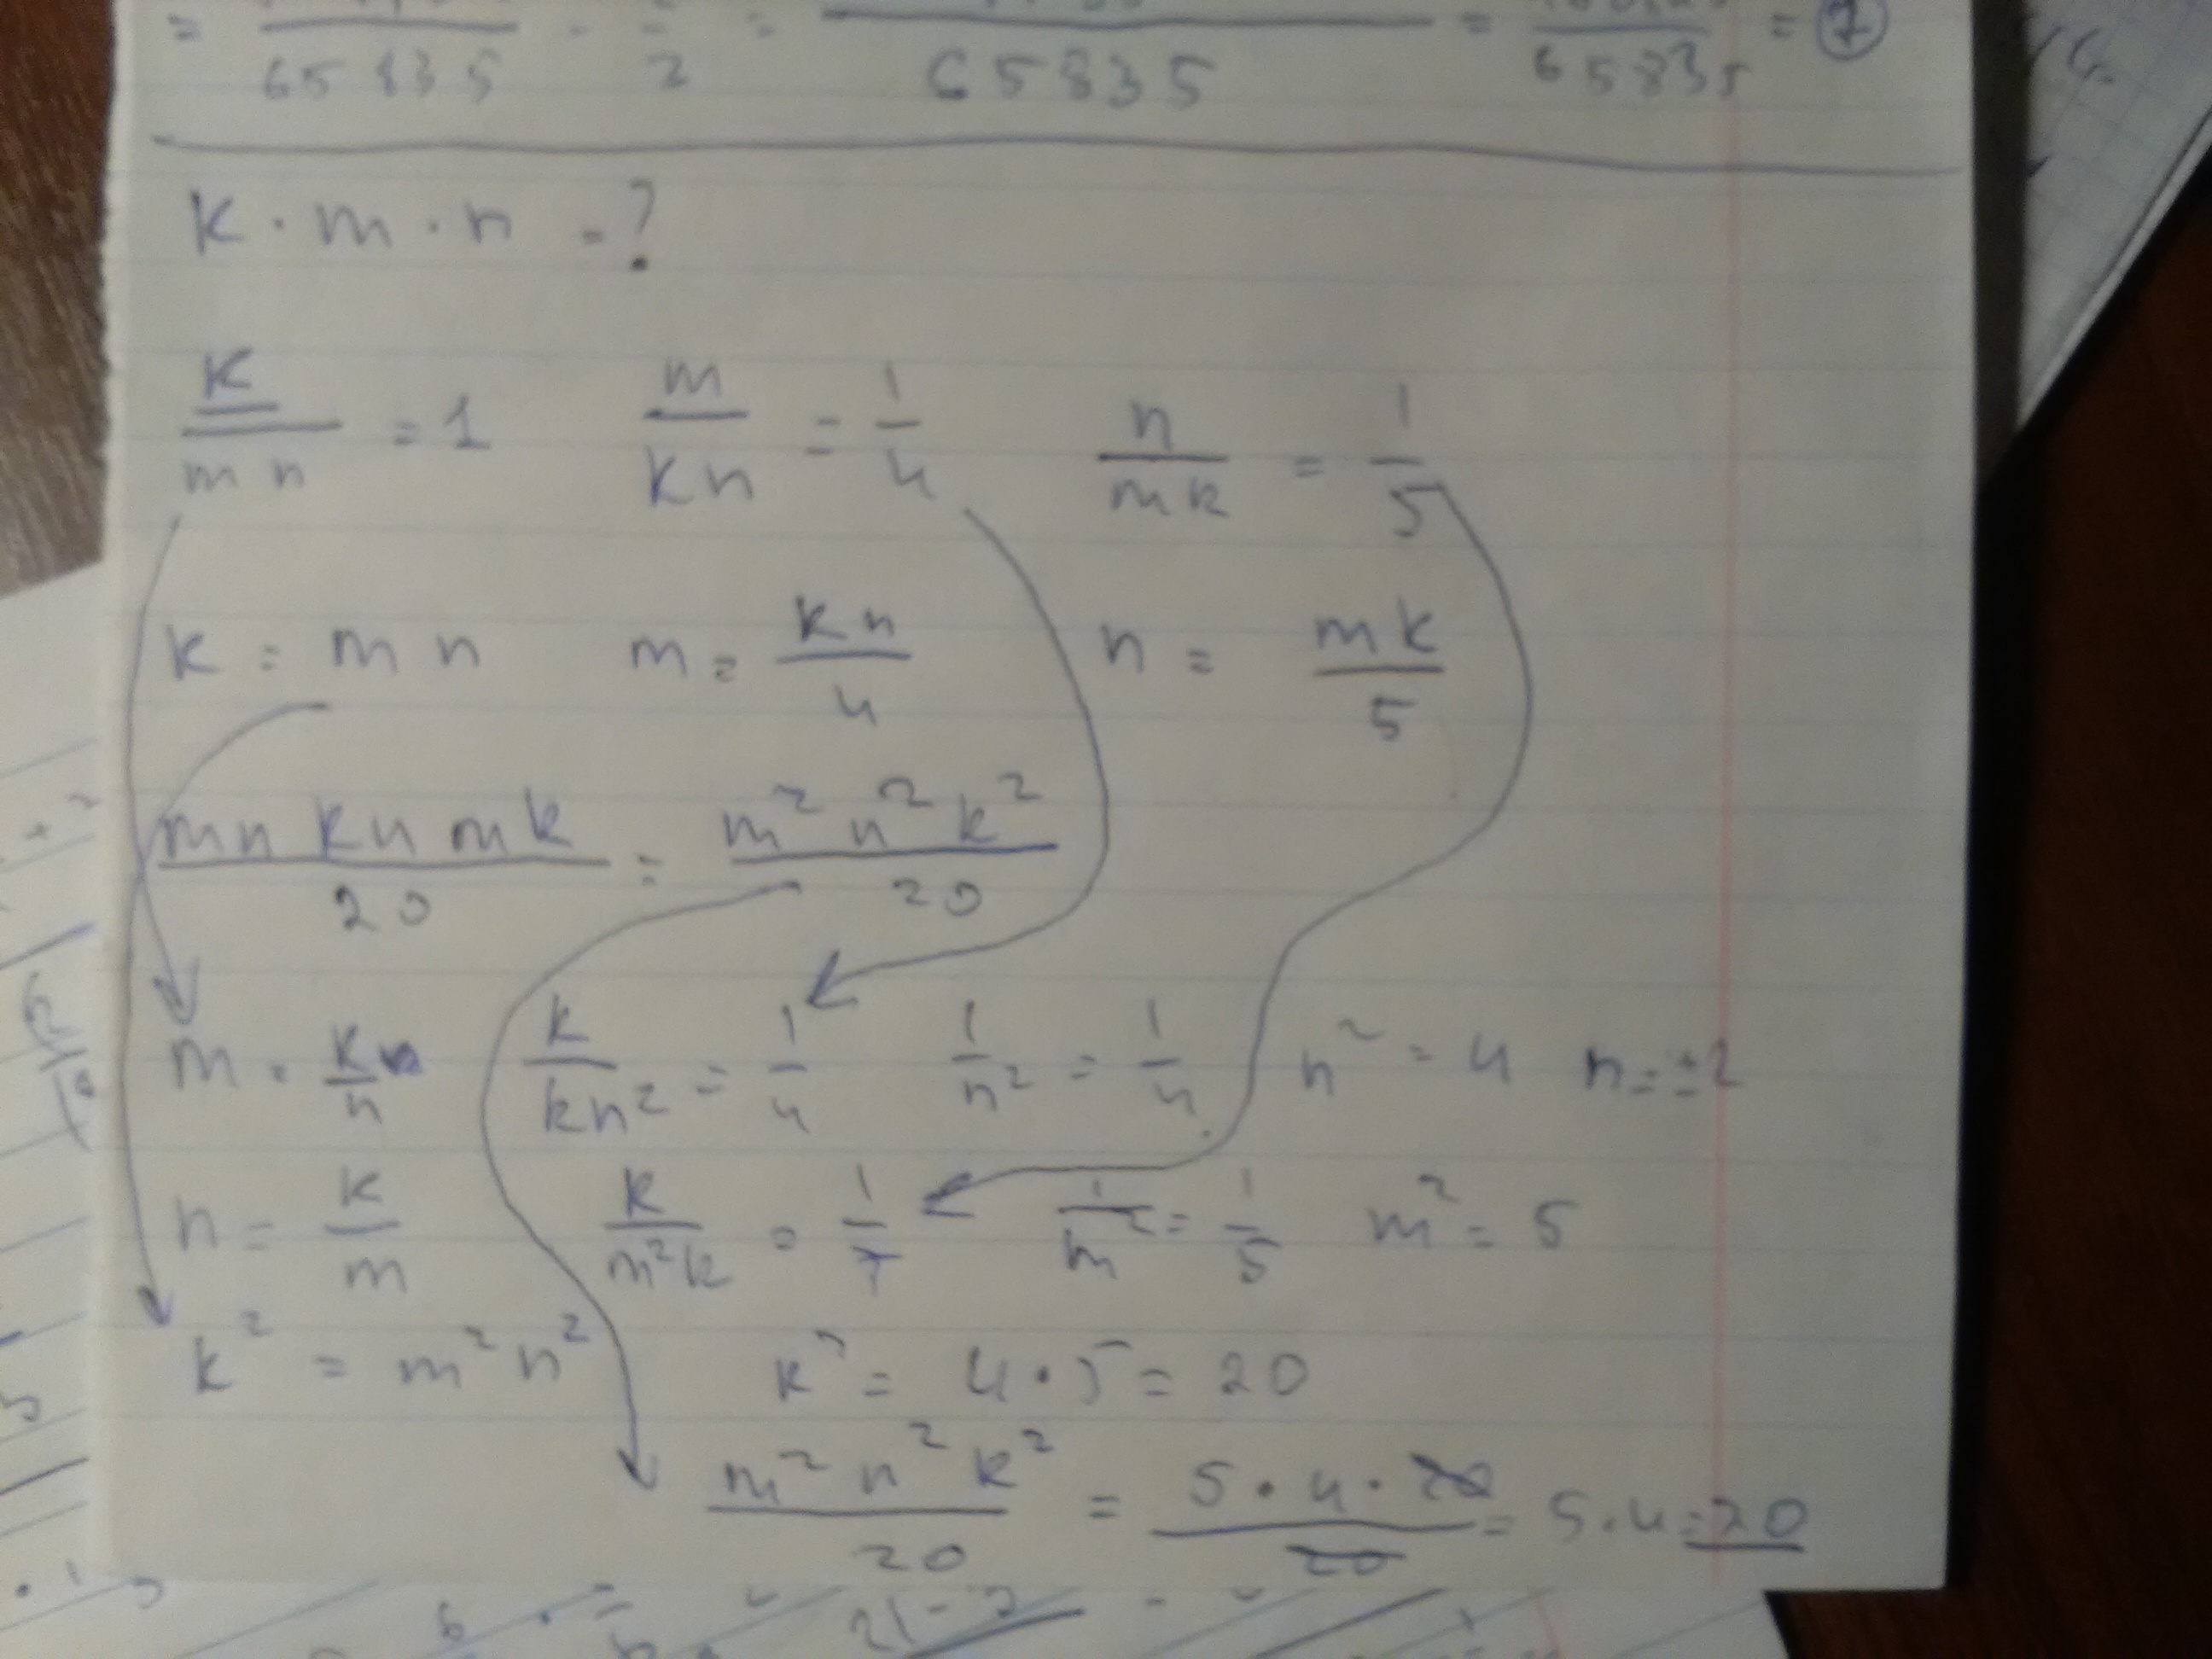 = ― · ―/2 = ―/65835 = ―/65835 = 7
k · m · n = ?
k/mn = 1 m/kn = 1/4 n/mk = 1/5
k = mn m = kn/4 n = mk/5
mn kn mk/20 = m²n²k²/20
m = k/n k/kn² = 1/4 1/n² = 1/4 n² = 4 n = ±2
n = k/m k/m²k = 1/5 1/m² = 1/5 m² = 5
k² = m²n² k² = 4·5 = 20
m²n²k²/20 = 5·4·20/20 = 5·4 = 20